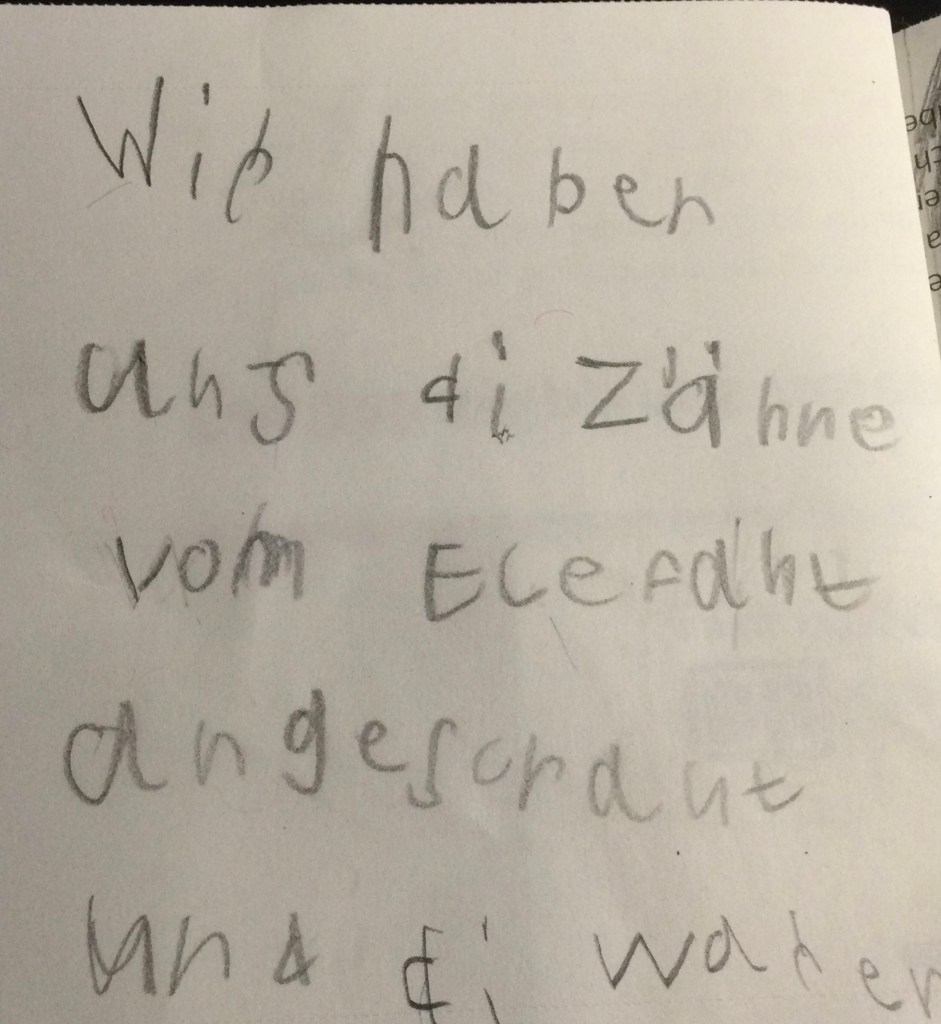 Wir haben
uns di Zähne
vom Elefant
angeschaut
und di waren